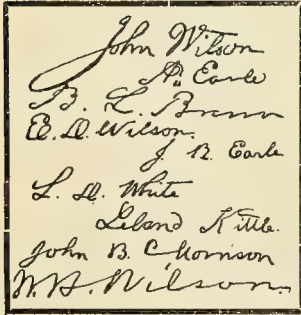 John Wilson
A. Earle
B. L. Brown
E. D. Wilson.
J. B. Earle
L. D. White
Leland Kittle.
John B. Chorrison
W. H. Wilson.